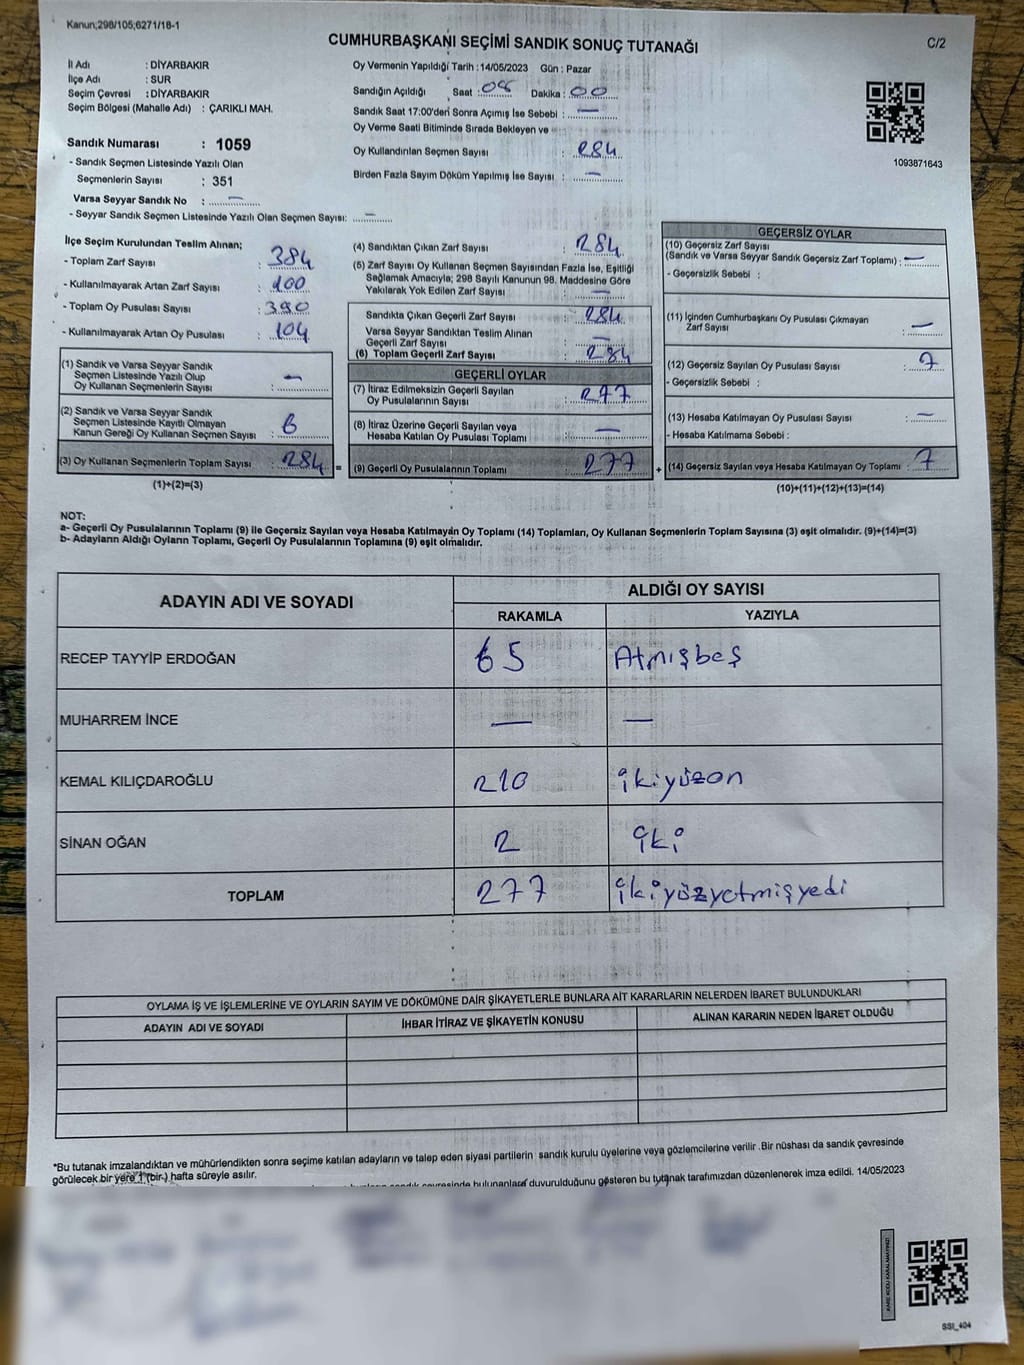 Kanun;298/105;6271/18-1
CUMHURBAŞKANI SEÇİMİ SANDIK SONUÇ TUTANAĞI
C/2
İl Adı : DİYARBAKIR
İlçe Adı : SUR
Seçim Çevresi : DİYARBAKIR
Seçim Bölgesi (Mahalle Adı) : ÇARIKLI MAH.
Sandık Numarası : 1059
- Sandık Seçmen Listesinde Yazılı Olan
Seçmenlerin Sayısı : 351
Varsa Seyyar Sandık No : —
- Seyyar Sandık Seçmen Listesinde Yazılı Olan Seçmen Sayısı: —
Oy Vermenin Yapıldığı Tarih : 14/05/2023 Gün : Pazar
Sandığın Açıldığı Saat : 08 Dakika : 00
Sandık Saat 17:00'den Sonra Açımış İse Sebebi : —
Oy Verme Saati Bitiminde Sırada Bekleyen ve
Oy Kullandırılan Seçmen Sayısı : 284
Birden Fazla Sayım Döküm Yapılmış İse Sayısı : —
1093871643
İlçe Seçim Kurulundan Teslim Alınan;
- Toplam Zarf Sayısı : 384
- Kullanılmayarak Artan Zarf Sayısı : 100
- Toplam Oy Pusulası Sayısı : 390
- Kullanılmayarak Artan Oy Pusulası : 104
(1) Sandık ve Varsa Seyyar Sandık
Seçmen Listesinde Yazılı Olup
Oy Kullanan Seçmenlerin Sayısı : —
(2) Sandık ve Varsa Seyyar Sandık
Seçmen Listesinde Kayıtlı Olmayan
Kanun Gereği Oy Kullanan Seçmen Sayısı : 6
(3) Oy Kullanan Seçmenlerin Toplam Sayısı : 284 =
(1)+(2)=(3)
(4) Sandıktan Çıkan Zarf Sayısı : 284
(5) Zarf Sayısı Oy Kullanan Seçmen Sayısından Fazla İse, Eşitliği
Sağlamak Amacıyla; 298 Sayılı Kanunun 98. Maddesine Göre
Yakılarak Yok Edilen Zarf Sayısı : —
Sandıkta Çıkan Geçerli Zarf Sayısı : 284
Varsa Seyyar Sandıktan Teslim Alınan
Geçerli Zarf Sayısı : —
(6) Toplam Geçerli Zarf Sayısı : 284
GEÇERLİ OYLAR
(7) İtiraz Edilmeksizin Geçerli Sayılan
Oy Pusulalarının Sayısı : 277
(8) İtiraz Üzerine Geçerli Sayılan veya
Hesaba Katılan Oy Pusulası Toplamı : —
(9) Geçerli Oy Pusulalarının Toplamı : 277 +
GEÇERSİZ OYLAR
(10) Geçersiz Zarf Sayısı
(Sandık ve Varsa Seyyar Sandık Geçersiz Zarf Toplamı) : —
- Geçersizlik Sebebi :
(11) İçinden Cumhurbaşkanı Oy Pusulası Çıkmayan
Zarf Sayısı : —
(12) Geçersiz Sayılan Oy Pusulası Sayısı : 7
- Geçersizlik Sebebi :
(13) Hesaba Katılmayan Oy Pusulası Sayısı : —
- Hesaba Katılmama Sebebi :
(14) Geçersiz Sayılan veya Hesaba Katılmayan Oy Toplamı : 7
(10)+(11)+(12)+(13)=(14)
NOT:
a- Geçerli Oy Pusulalarının Toplamı (9) ile Geçersiz Sayılan veya Hesaba Katılmayan Oy Toplamı (14) Toplamları, Oy Kullanan Seçmenlerin Toplam Sayısına (3) eşit olmalıdır. (9)+(14)=(3)
b- Adayların Aldığı Oyların Toplamı, Geçerli Oy Pusulalarının Toplamına (9) eşit olmalıdır.
ADAYIN ADI VE SOYADI
ALDIĞI OY SAYISI
RAKAMLA YAZIYLA
RECEP TAYYİP ERDOĞAN 65 Atmışbeş
MUHARREM İNCE — —
KEMAL KILIÇDAROĞLU 210 ikiyüzon
SİNAN OĞAN 2 iki
TOPLAM 277 ikiyüzyetmişyedi
OYLAMA İŞ VE İŞLEMLERİNE VE OYLARIN SAYIM VE DÖKÜMÜNE DAİR ŞİKAYETLERLE BUNLARA AİT KARARLARIN NELERDEN İBARET BULUNDUKLARI
ADAYIN ADI VE SOYADI İHBAR İTİRAZ VE ŞİKAYETİN KONUSU ALINAN KARARIN NEDEN İBARET OLDUĞU
*Bu tutanak imzalandıktan ve mühürlendikten sonra seçime katılan adayların ve talep eden siyasi partilerin sandık kurulu üyelerine veya gözlemcilerine verilir .Bir nüshası da sandık çevresinde
görülecek bir yere 1 (bir-) hafta süreyle asılır.
sandık çevresinde bulunanlara duyurulduğunu gösteren bu tutanak tarafımızdan düzenlenerek imza edildi. 14/05/2023
SSI_404